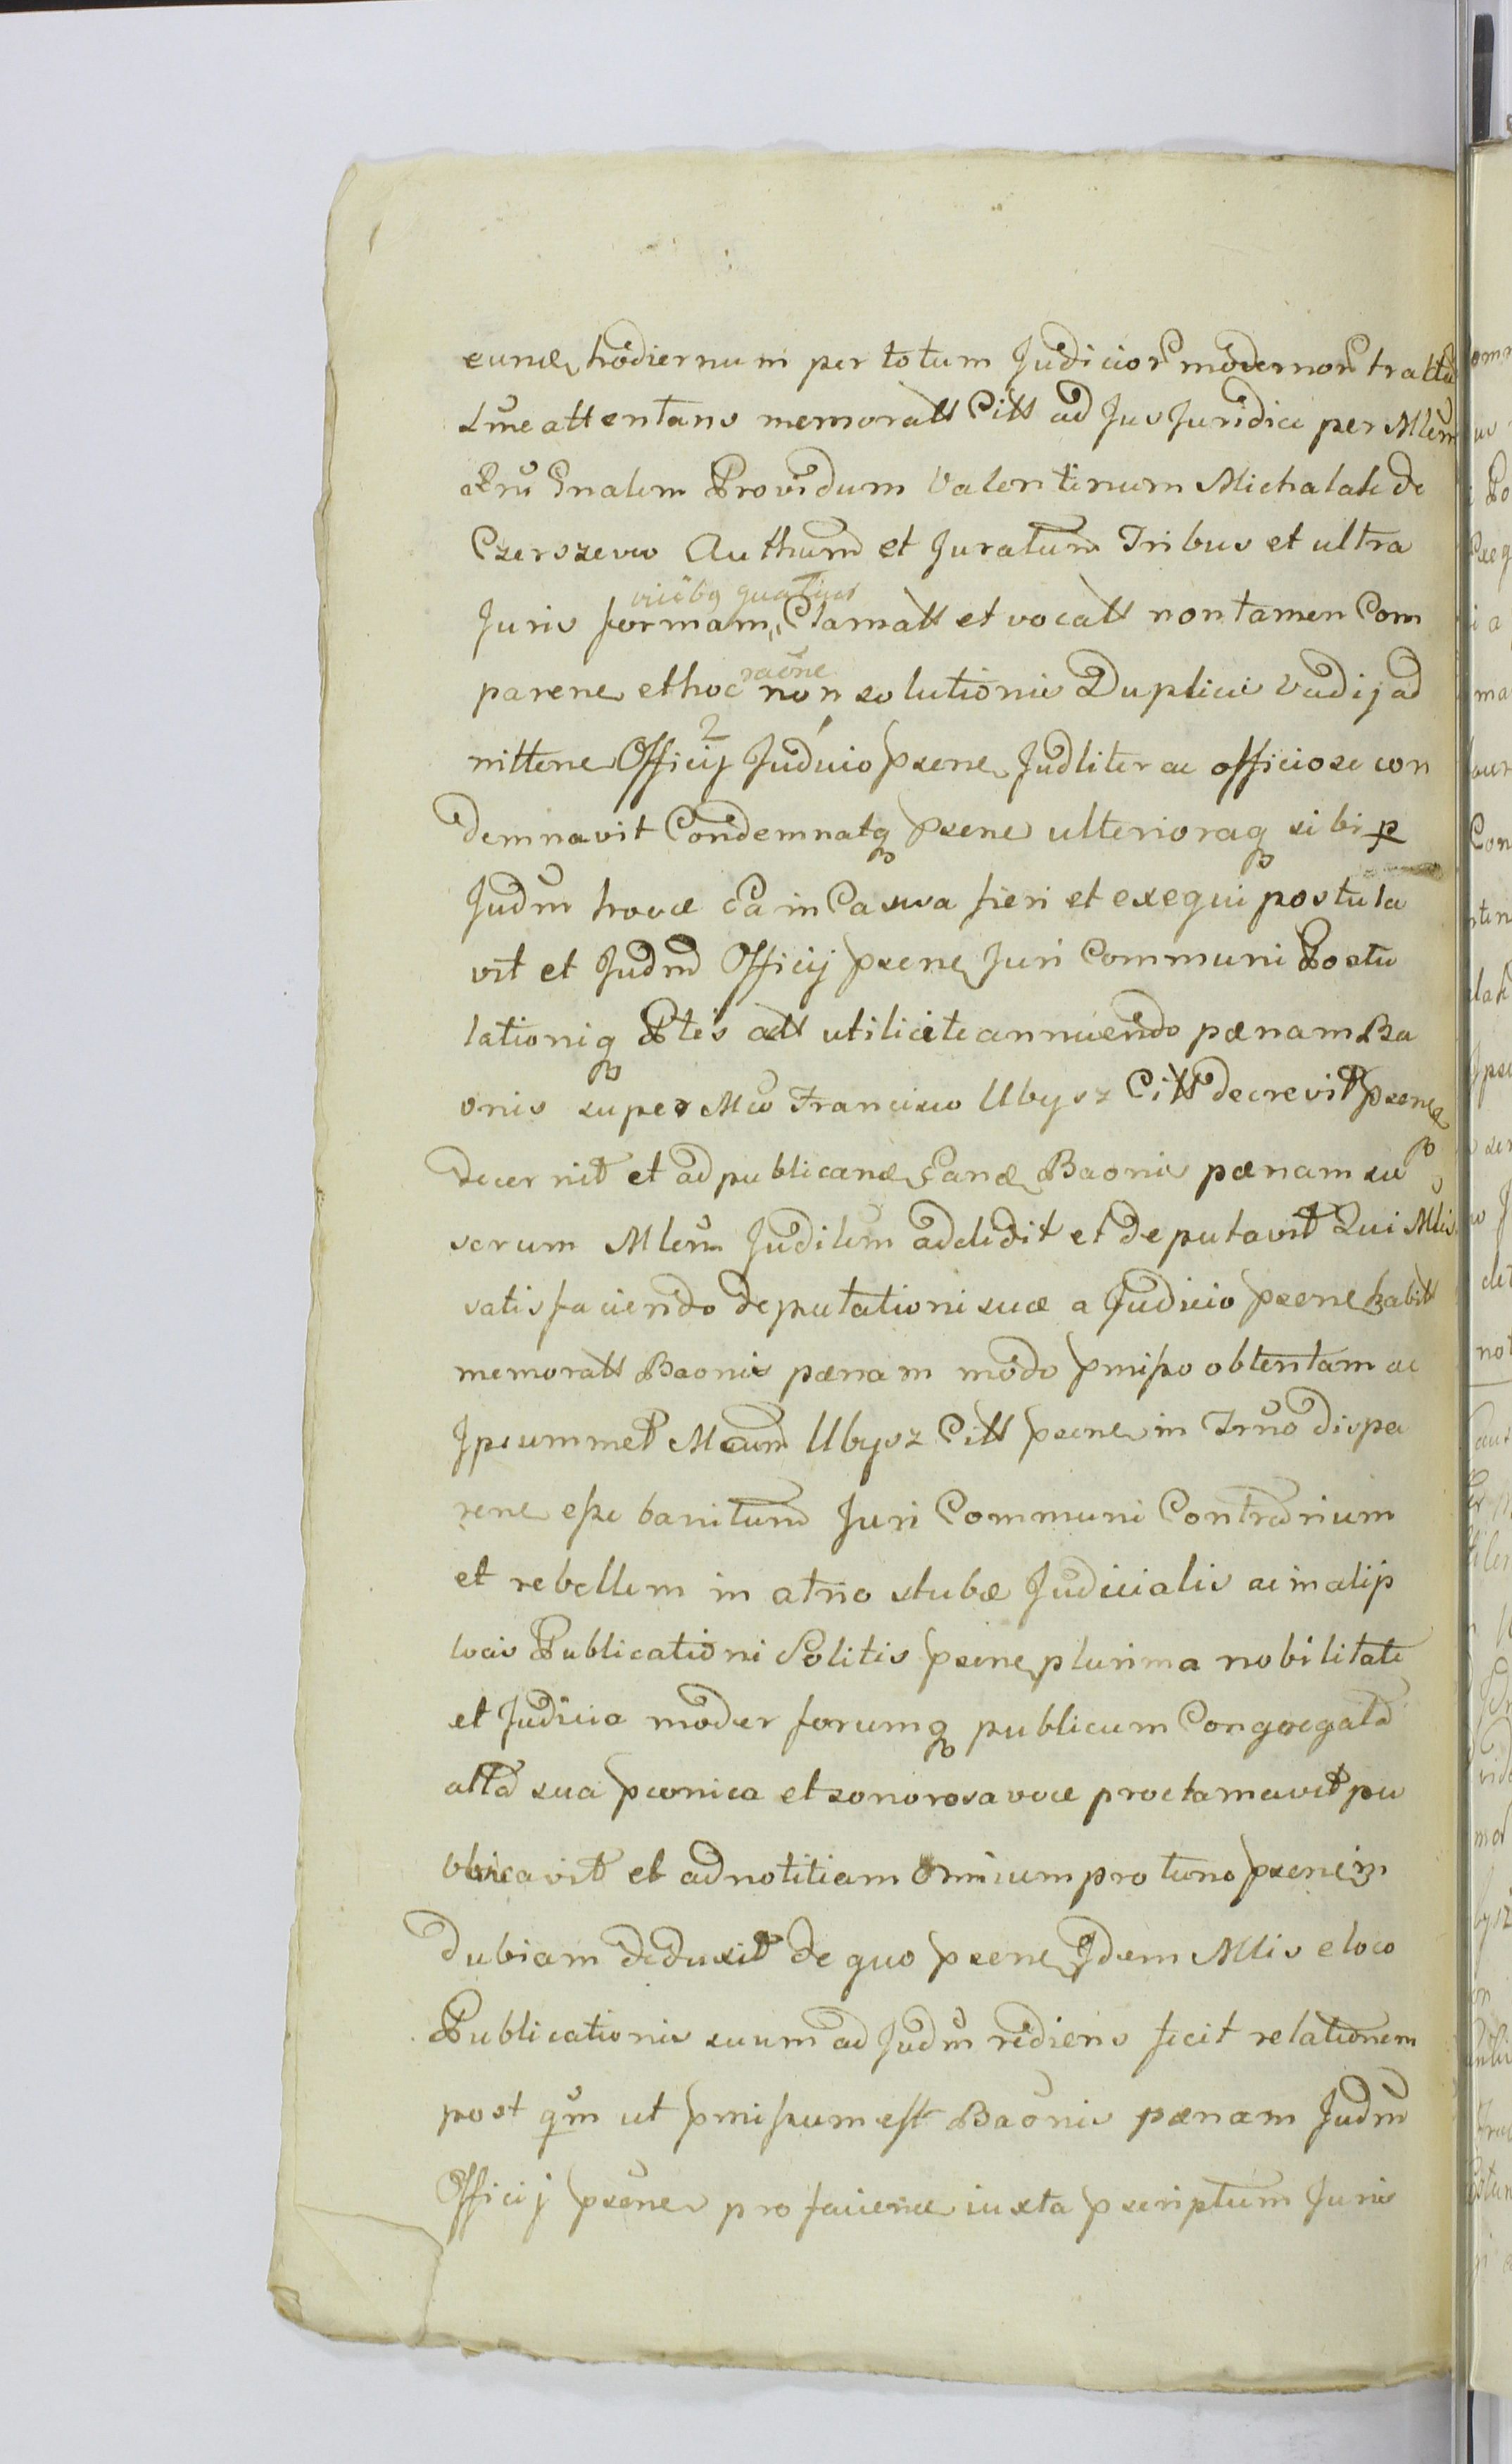 eunde hodiernum per totum Judicior modernor tractu
Lme attentans memoratt Citt ad Jus Juridice per Mlem
Rni Gnalem Providum Valentinum Michalak de
Czerszewo Authum et Juratum Tribus et ultra
vicibq quatuor
Juris formam,, Clamatt et vocatt non tamen Com
raone
paren et hoc non solutionis Duplicis Vadij ad
2
mitten Officij Judicio psen Judliter ac officiose con
demnavit Condemnatq psen ulterioraq sibi p
Judm hocce ea in Causa fieri et exequi postula
vit et Judm Officij psen Juri Communi Postu
lationiq Ptis att utilicite annuendo pœnam Ba
onis super Mco Francisco Ubysz Citt decrevit psenq
decernit et ad publicand eand Baonis pœnam su
rum Mlem Judilem addidit et deputavit Qui Mlis
satisfaciendo deputationi suæ a Judicio psen habit
memoratt Baonis pœnam modo pmisso obtentam ac
Ipsummet Mcum Ubysz Citt psen in Trno dispa
ren esse banitum Juri Communi Contrarium
et rebellem in atrio stubæ Judicialis ac in aliis
locis Publicationi Solitis psen plurima nobilitate
et Judicia moder forumq publicum Congregata
alta sua pconica et sonorosa voce proclamavit pu
blicavit et ad notitiam omnium pro tunc psen in
dubiam deduxit de quo psen Idem Mlis e loco
Publicationis suum ad Judm rediens fecit relationem
post qm ut pmissum est Baonis pœnam Judm
Officij psen pro faciend iuxta pscriptum Juris